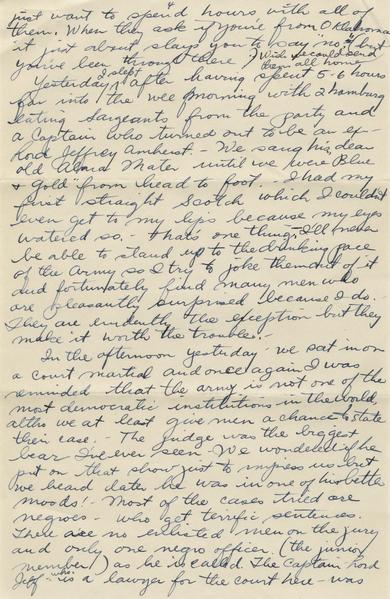 4
just want to spend hours with all of
them. When they ask if you're from Oklahoma
it just about slays you to say "no" but
you've been through there!) Wish we could send
them all home.
Yesterday I slept after having spent 5-6 hours
far into the wee morning with 2 hamburg
eating Sargeants from the party and
a Captain who turned out to be an ex-
Lord Jeffrey Amherst. - We sang his dear
old Alma Mater until we were Blue
& Gold from head to foot. I had my
first straight Scotch which I couldn't
even get to my lips because my eyes
watered so. - that's one thing - I'll never
be able to stand up to the drinking pace
of the Army so I try to joke them out of it
and fortunately find many men who
are pleasantly surprised because I do.
They are evidently the exception - but they
make it worth the trouble. -
In the afternoon yesterday - we sat in on
a court martial and once again I was
reminded that the army is not one of the
most democratic institutions in the world,
altho we at least give men a chance to state
their case. - The judge was the biggest
bear I've ever seen. We wondered if he
put on that show just to impress us but
we heard later he was in one of his better
moods! - Most of the cases tried are
negroes - who get terrific sentences.
There are no enlisted men on the jury
and only one negro officer. (the junior
member) as he is called. The Captain Lord
Jeff - who is a lawyer for the court here - was